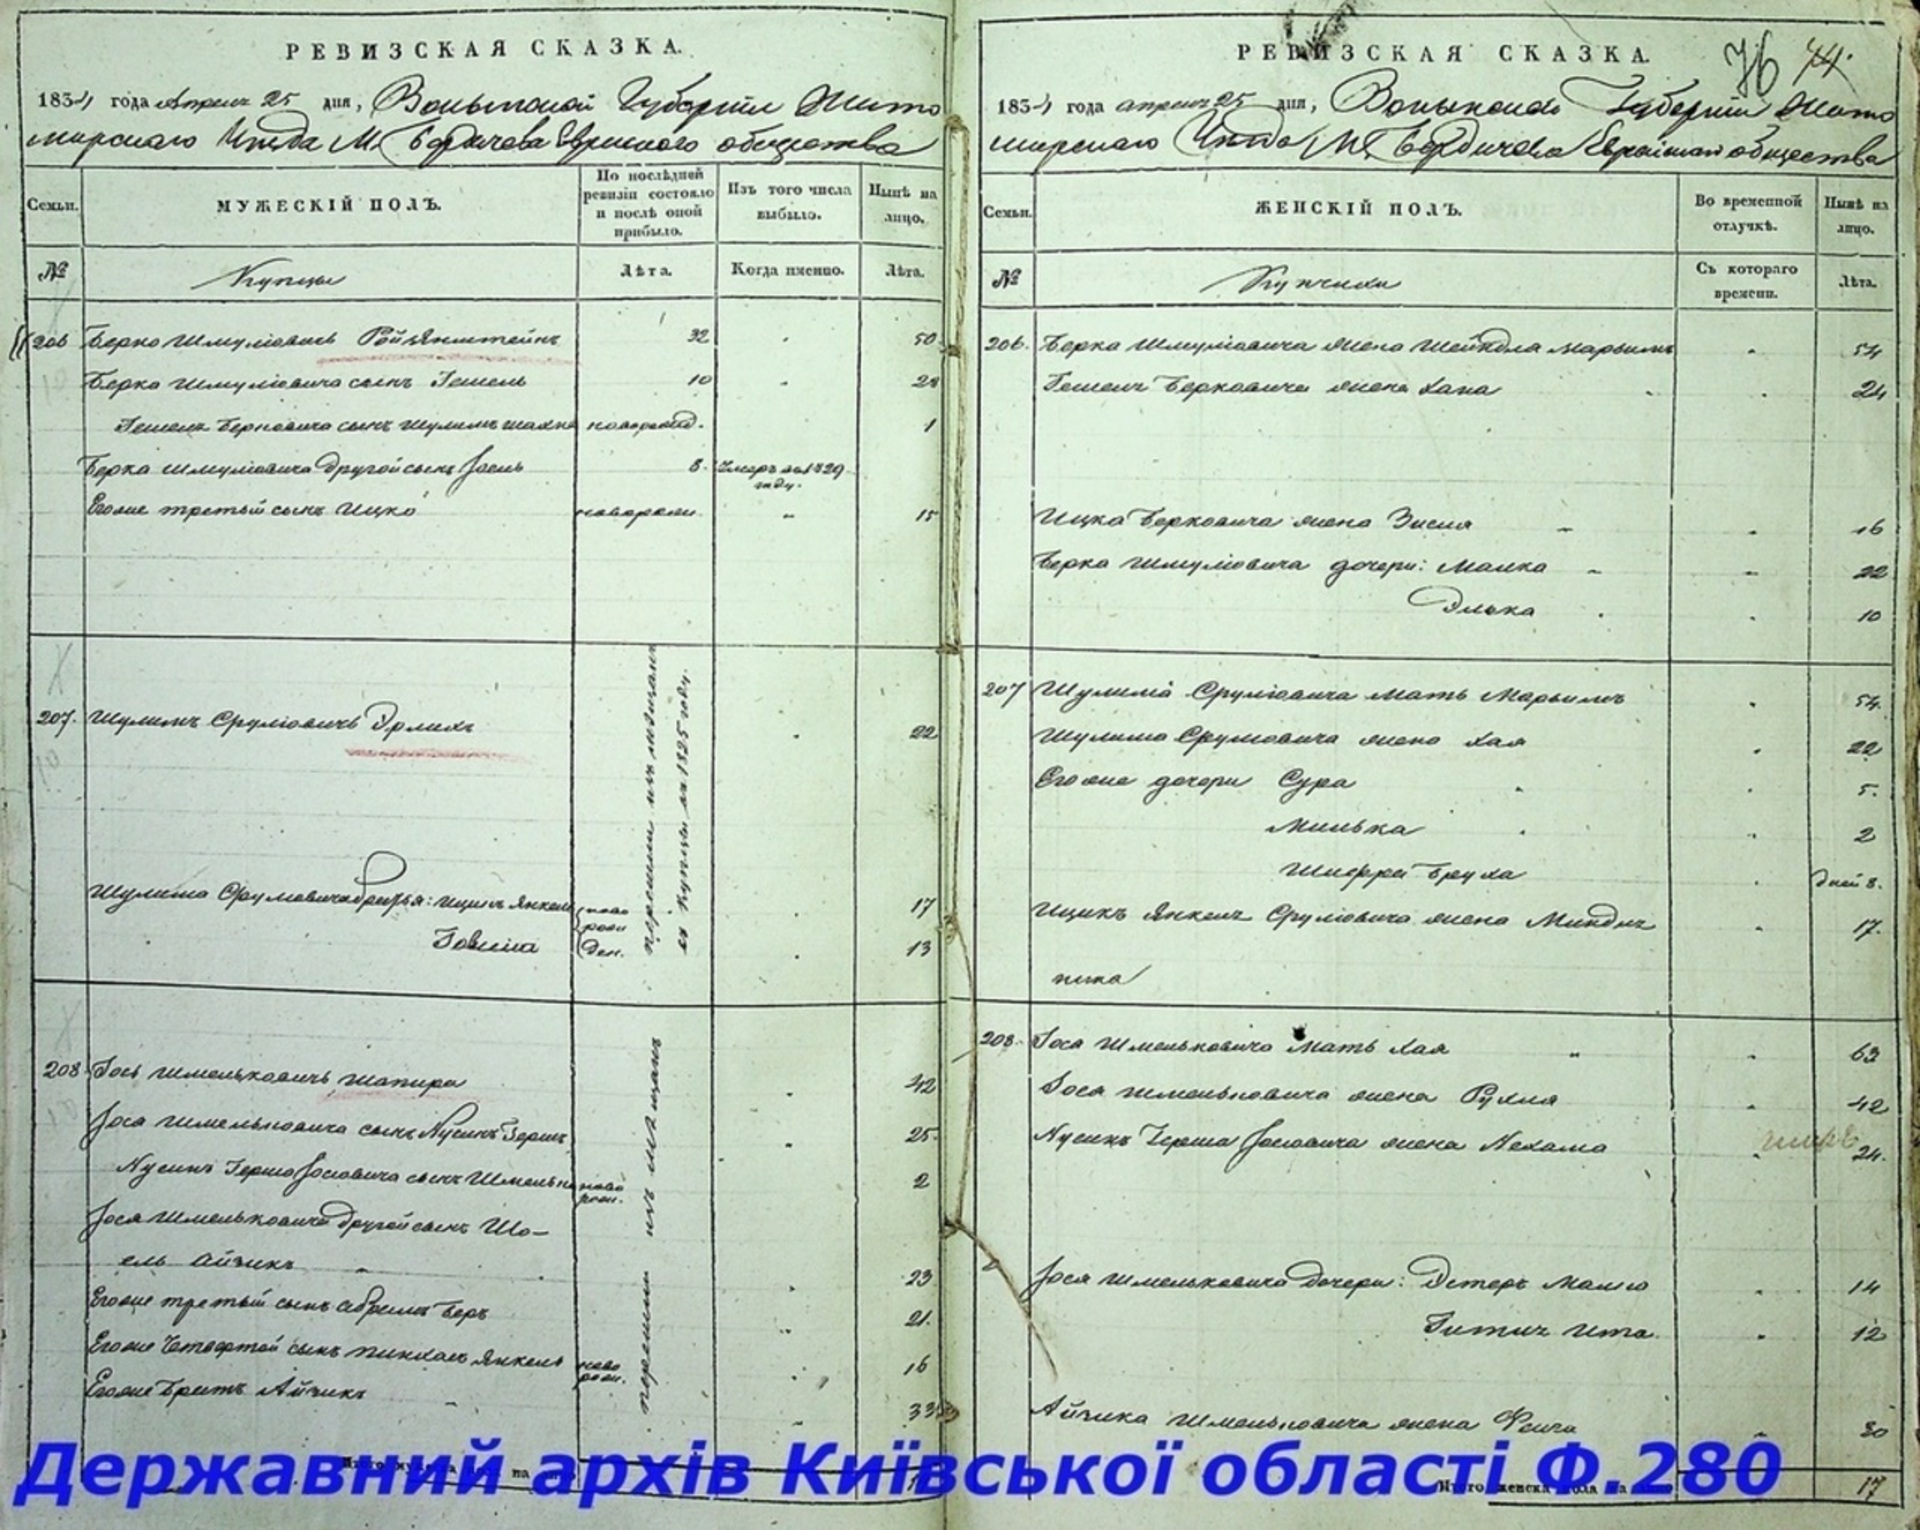 РЕВИЗСКАЯ СКАЗКА.
1834 года Апреля 25 дня, Волынской Губернии Жито
мирскаго Уезда М. Бердичева Еврейского общества
Семьи.
МУЖЕСКІЙ ПОЛЪ.
По послѣдней ревизіи состояло и послѣ оной прибыло.
Изъ того числа выбыло.
Нынѣ на лицо.
№
Купцы
Лѣта.
Когда именно.
Лѣта.
206 Берко Шмуліовичъ 32 50
Берка Шмуліовича сынъ Гешель 10 28
Гешеля Берковича сынъ Шулимъ новорожд. 1
Берка Шмуліовича другой сынъ Іосль 8. Умеръ въ 1829 году.
Егоже третьій сынъ Ицко новорожд. 15
207. Шулимъ Сруліовичъ Эрлихъ 22
перешли изъ мещанъ въ купцы въ 1825 году.
Шулима Сруліовича братья: Ицикъ Янкель ново 17
Говшія рожден. 13
208 Іось Шмельковичъ Шапира 42
Іося Шмельковича сынъ Нусинъ Гершъ 25
Нусинъ Герша Іосіовича сынъ Шмелька новорож. 2
Іося Шмельковича другой сынъ Шо-
ель Айзикъ 23
Егоже третьій сынъ Абрамъ Беръ 21.
Егоже Четвертой сынъ Пинхасъ Янкель новорож. 16
Егоже Братъ Айзикъ 33
перешли изъ мещанъ
РЕВИЗСКАЯ СКАЗКА.
76 74.
1834 года апреля 25 дня, Волынской Губерніи Жито
мирскаго Уезда М. Бердичева Еврейскаго общества
Семьи.
ЖЕНСКІЙ ПОЛЪ.
Во временной отлучкѣ.
Нынѣ на лицо.
№
Купчихи
Съ котораго времени.
Лѣта.
206. Берка Шмуліовича жена Марьямъ 54
Гешеля Берковича жена Хана 24
Ицка Берковича жена Зисля 16
Берка Шмуліовича дочери: Малка 22
Элька 10
207 Шулима Сруліовича Мать Марьямъ 54.
Шулима Сруліовича жена Хая 22
Егоже дочери Сура 5.
Милька 2
Шифра Бруха дней 8.
Ицикъ Янкеля Сруліовича жена Миндля 17.
208. Іося Шмельковича Мать Хая 63
Іося Шмельковича жена Рухля 42
Нусинъ Герша Іосіовича жена Нехама 24.
Іося Шмельковича дочери: Эстеръ Малія 14
Гитля Ита 12
Айзика Шмельковича жена Фейга 30
Итого женска пола на лицо 17
Державний архів Київської області Ф.280